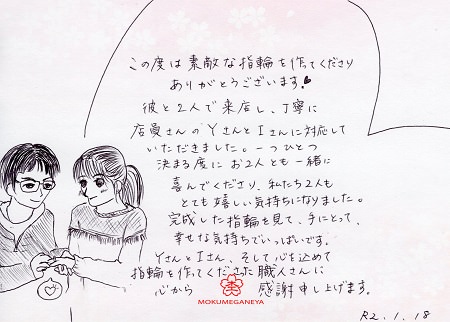 この度は素敵な指輪を作ってくださり
ありがとうございます。
彼と2人で来店し、丁寧に
店員さんのYさんとIさんに対応して
いただきました。一つひとつ
決まる度にお2人とも一緒に
喜んでくださり、私たち2人も
とても嬉しい気持ちになりました。
完成した指輪を見て、手にとって、
幸せな気持ちでいっぱいです。
YさんとIさん、そして心を込めて
指輪を作ってくださった職人さんに
心から 感謝申し上げます。
MOKUMEGANEYA
R2.1.18